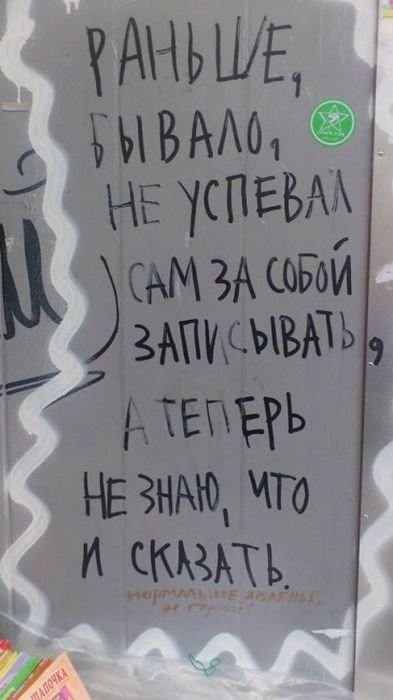 РАНЬШЕ,
БЫВАЛО,
НЕ УСПЕВАЛ
САМ ЗА СОБОЙ
ЗАПИСЫВАТЬ,
А ТЕПЕРЬ
НЕ ЗНАЮ, ЧТО
И СКАЗАТЬ.
НОРМАЛЬНОЕ ЯВЛЕНЬЕ,
НЕ ГОРЮЙ!
ШАПОЧКА